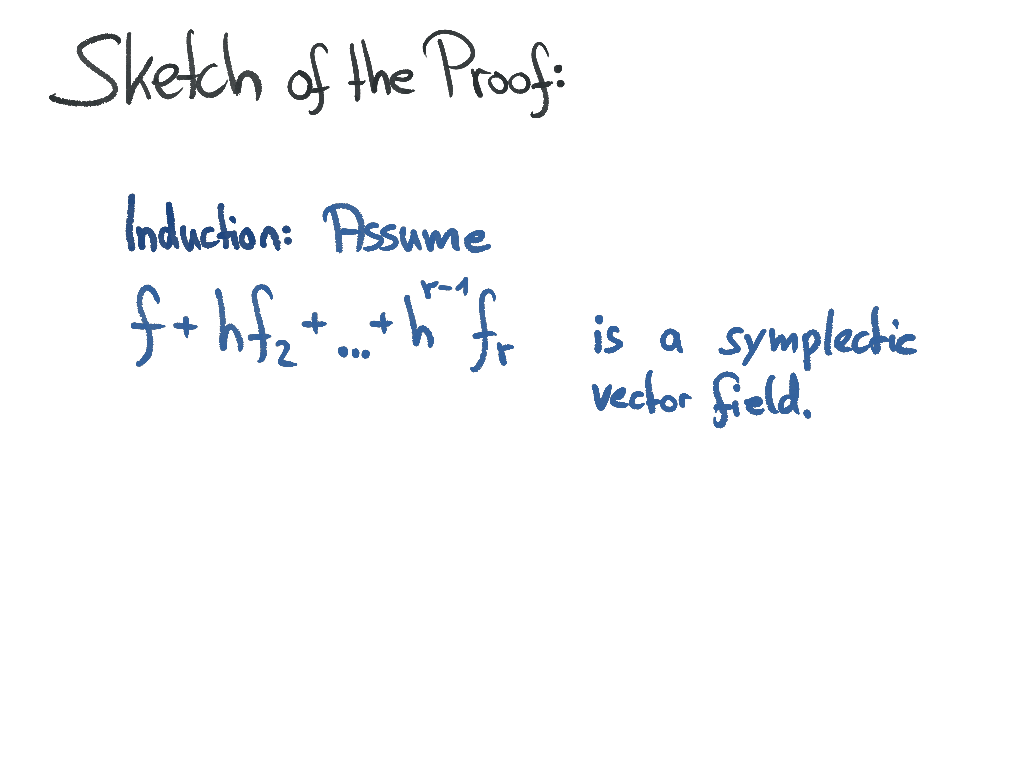 Sketch of the Proof:
Induction: Assume
f + hf₂ + ... + hʳ⁻¹ fᵣ is a symplectic
vector field.